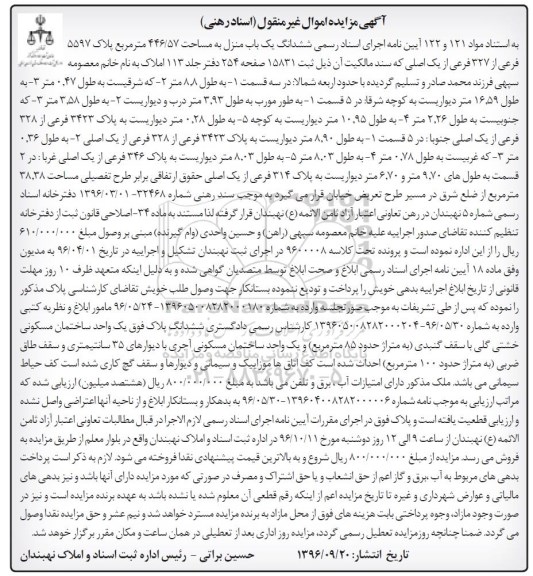 آگهی مزایده اموال غیر منقول (اسناد رهنی)
به استناد مواد ۱۲۱ و ۱۲۲ آیین نامه اجرای اسناد رسمی ششدانگ یک باب منزل به مساحت ۴۴۶/۵۷ مترمربع پلاک ۵۵۹۷
فرعی از ۳۲۷ فرعی از یک اصلی که سند مالکیت آن ذیل ثبت ۱۵۸۳۱ صفحه ۲۵۴ دفتر جلد ۱۱۳ املاک به نام خانم معصومه
سپهی فرزند محمد صادر و تسلیم گردیده با حدود اربعه شمالا: در سه قسمت ۱- به طول ۸،۸ متر ۲- که شرقیست به طول ۰،۴۷ متر ۳- به
طول ۱۶،۵۹ متر دیواریست به کوچه شرقا: در ۵ قسمت ۱- به طور مورب به طول ۳،۹۳ متر درب و دیواریست ۲- به طول ۳،۵۸ متر ۳- که
جنوبیست به طول ۲،۲۶ متر ۴- به طول ۱۰،۹۵ متر دیواریست به کوچه ۵- به طول ۰،۲۸ متر دیواریست به پلاک ۳۴۲۳ فرعی از ۳۲۸
فرعی از یک اصلی جنوبا: در ۵ قسمت ۱- به طول ۸،۹۰ متر دیواریست به پلاک ۳۴۲۳ فرعی از ۳۲۸ فرعی از یک اصلی ۲- به طول ۰،۳۶
متر ۳- که غربیست به طول ۰،۷۸ متر ۴- به طول ۸،۰۳ متر ۵- به طول ۸،۰۳ متر دیواریست به پلاک ۳۴۶ فرعی از یک اصلی غربا: در ۲
قسمت به طول های ۹،۷۰ متر و ۶،۷۰ متر دیواریست به پلاک ۳۱۴ فرعی از یک اصلی حقوق ارتفاقی برابر طرح تفصیلی مساحت ۳۸،۳۸
مترمربع از ضلع شرق در مسیر طرح تعریض خیابان قرار می گیرد به موجب سند رهنی شماره ۳۲۴۶۸- ۱۳۹۶/۰۳/۰۱ دفترخانه اسناد
رسمی شماره ۵ نهبندان در رهن تعاونی اعتبار آزاد ثامن الائمه (ع) نهبندان قرار گرفته لذا مستند به ماده ۳۴- اصلاحی قانون ثبت از دفترخانه
تنظیم کننده تقاضای صدور اجراییه علیه خانم معصومه سپهی (راهن) و حسین واحدی (وام گیرنده) مبنی بر وصول مبلغ ۶۱۰/۰۰۰/۰۰۰
ریال را از این اداره نموده است و پرونده تحت کلاسه ۹۶۰۰۰۰۸ در اجرای ثبت نهبندان تشکیل و اجراییه در تاریخ ۹۶/۰۴/۰۱ به مدیون
وفق ماده ۱۸ آیین نامه اجرای اسناد رسمی ابلاغ و صحت ابلاغ توسط متصدیان گواهی شده و به دلیل اینکه متعهد ظرف ۱۰ روز مهلت
قانونی از تاریخ ابلاغ اجراییه بدهی خویش را پرداخت و تودیع ننموده بستانکار جهت وصول طلب خویش تقاضای کارشناسی پلاک مذکور
را نموده که پس از طی تشریفات به موجب صورتجلسه وارده به شماره ۱۳۹۶۰۵۰۰۸۲۸۳۰۰۰۱۸۰- ۹۶/۰۵/۲۴ مامور ابلاغ و نظریه کتبی
وارده به شماره ۱۳۹۶۰۵۰۰۸۲۸۲۰۰۰۲۰۴-۹۶/۰۵/۳۰ کارشناس رسمی دادگستری ششدانگ پلاک فوق یک واحد ساختمان مسکونی
خشتی گلی با سقف گنبدی (به متراژ حدود ۸۵ مترمربع) و یک واحد ساختمان مسکونی آجری با دیوارهای ۳۵ سانتیمتری و سقف طاق
ضربی (به متراژ حدود ۱۰۰ مترمربع) احداث شده است کف اتاق ها موزاییک و سیمانی و دیوارها و سقف گچ کاری شده است کف حیاط
سیمانی می باشد. ملک مذکور دارای امتیازات آب، برق و تلفن می باشد به مبلغ ۸۰۰/۰۰۰/۰۰۰ ریال (هشتصد میلیون) ارزیابی شده که
مراتب ارزیابی به موجب نامه شماره ۱۳۹۶۰۴۰۰۸۲۸۳۰۰۰۰۰۶-۹۶/۰۵/۳۰ به بدهکار و بستانکار ابلاغ و از ناحیه آنها اعتراضی واصل نشده
و ارزیابی قطعیت یافته است و پلاک فوق در اجرای مقررات آیین نامه اجرای اسناد رسمی لازم الاجرا در قبال مطالبات تعاونی اعتبار آزاد ثامن
الائمه (ع) نهبندان از ساعت ۹ الی ۱۲ روز دوشنبه مورخ ۹۶/۱۰/۱۱ در اداره ثبت اسناد و املاک نهبندان واقع در بلوار معلم از طریق مزایده به
فروش می رسد. مزایده از مبلغ ۸۰۰/۰۰۰/۰۰۰ ریال شروع و به بالاترین قیمت پیشنهادی نقدا فروخته می شود. لازم به ذکر است پرداخت
بدهی های مربوط به آب، برق و گاز اعم از حق انشعاب و یا حق اشتراک و مصرف در صورتی که مورد مزایده دارای آنها باشد و نیز بدهی های
مالیاتی و عوارض شهرداری و غیره تا تاریخ مزایده اعم از اینکه رقم قطعی آن معلوم شده یا نشده باشد به عهده برنده مزایده است و نیز در
صورت وجود مازاد، وجوه پرداختی بابت هزینه های فوق از محل مازاد به برنده مزایده مسترد خواهد شد و نیم عشر و حق مزایده نقدا وصول
می گردد. ضمنا چنانچه روز مزایده تعطیل رسمی گردد، مزایده روز اداری بعد از تعطیلی در همان ساعت و مکان مقرر برگزار خواهد شد.
تاریخ انتشار: ۱۳۹۶/۰۹/۲۰ حسین براتی - رئیس اداره ثبت اسناد و املاک نهبندان